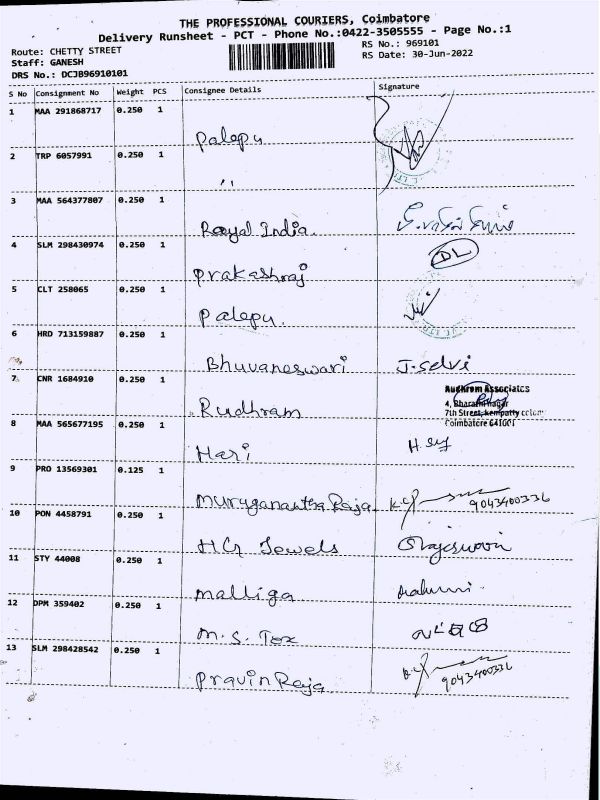 THE PROFESSIONAL COURIERS, Coimbatore
Delivery Runsheet - PCT - Phone No.:0422-3505555 - Page No.:1
Route: CHETTY STREET
RS No.: 969101
Staff: GANESH
RS Date: 30-Jun-2022
DRS No.: DCJB96910101
S No Consignment No Weight PCS Consignee Details Signature
1 MAA 291868717 0.250 1
Palepu
2 TRP 6057991 0.250 1
"
3 MAA 564377807 0.250 1
Royal India.
4 SLM 298430974 0.250 1
Prakashraj DL
5 CLT 258065 0.250 1
Palepu.
6 HRD 713159887 0.250 1
Bhuvaneswari J. Selvi
7 CNR 1684910 0.250 1
Rudhram Associates
4, Bharathi nagar
7th Street, kempatty colony
Coimbatore 641001
Rudhram
8 MAA 565677195 0.250 1
Hari
9 PRO 13569301 0.125 1
Muruganantha Raja 9043400336
10 PON 4458791 0.250 1
HCG Jewels
11 STY 44008 0.250 1
Malliga
12 DPM 359402 0.250 1
M.S. Tex
13 SLM 298428542 0.250 1
Pravin Raja 9043400336